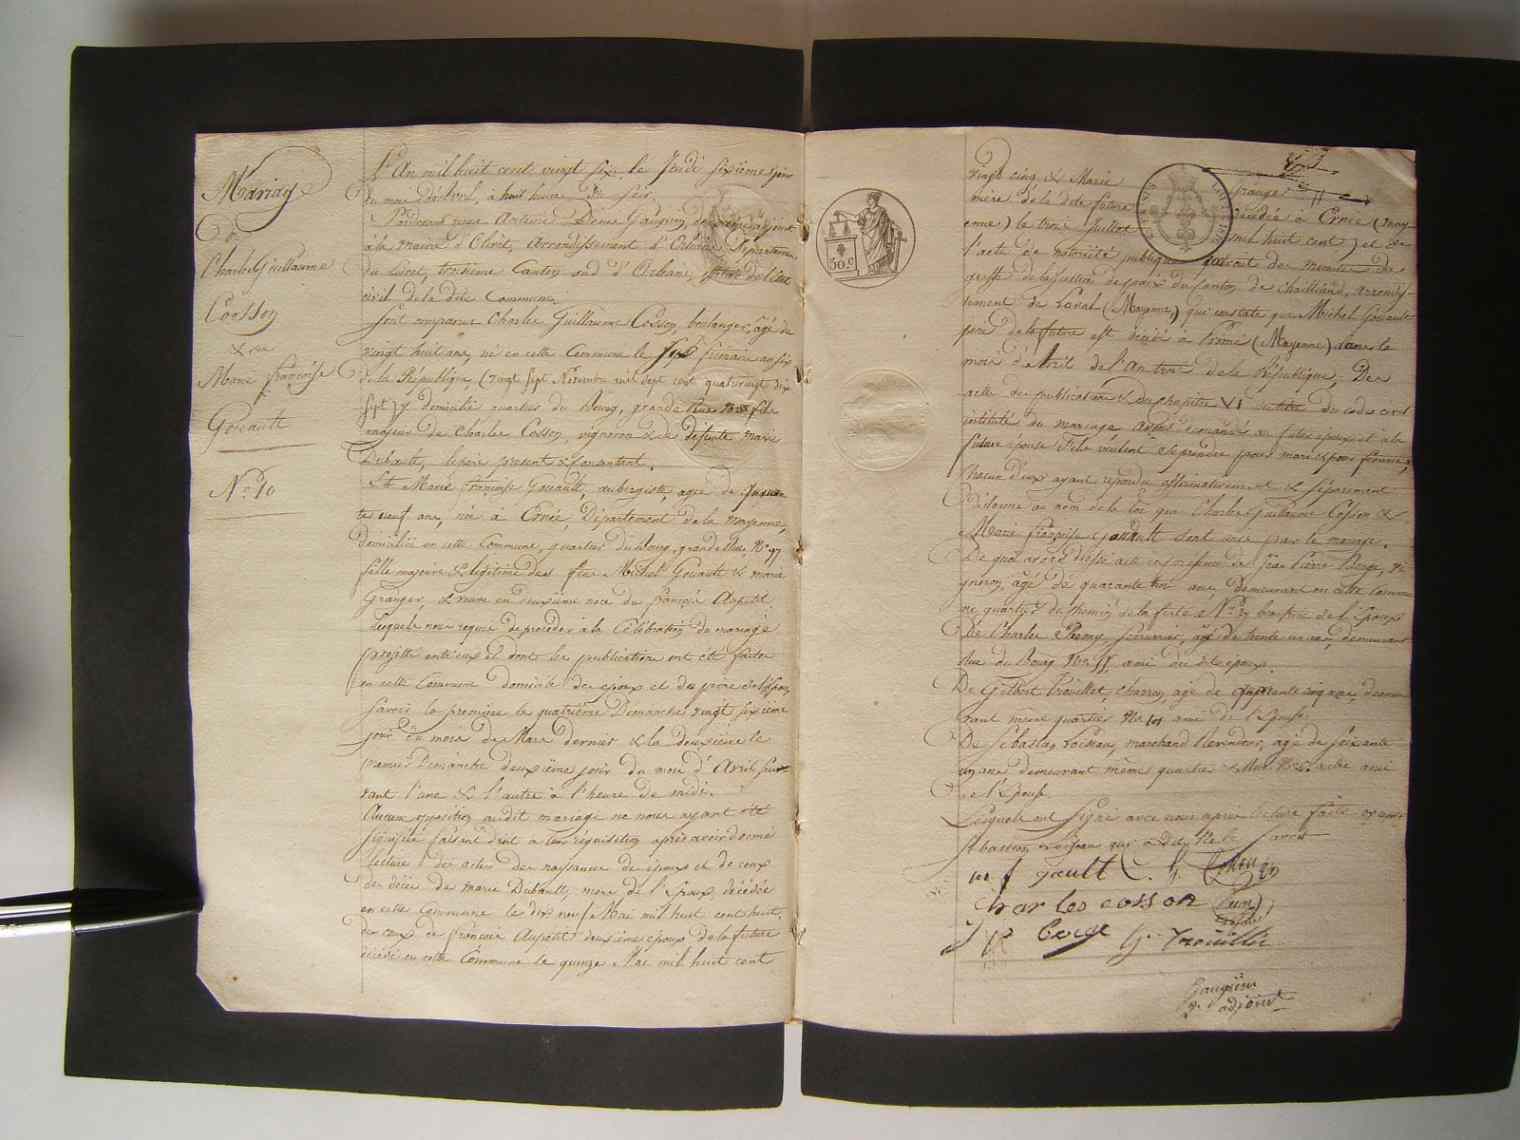 Mariage
de
Charles Guillaume
Cosson
&
Marie françoise
Gouault
N.º 10
L'An mil huit cent vingt six, le Jeudi sixième jour
du mois d'Avril, à huit heures du soir
Pardevant nous Antoine Gaugoin
à la Mairie d'Olivet, Arrondissement d'Orléans, Département
du Loiret, troisième Canton sud d'Orléans, de l'état
civil de la dite Commune.
Sont comparus Charles Guillaume Cosson, boulanger, âgé de
vingt huit ans, né en cette Commune le sept frimaire an six
de la République, (vingt sept Novembre mil sept cent quatrevingt dix
sept) & domicilié quartier du Bourg, grande Rue fils
majeur de Charles Cosson, vigneron & de défunte Marie
Dubault, le père présent & consentant.
Et Marie françoise Gouault, aubergiste, agée de quaran
te neuf ans, née à Ernée, Département de la Mayenne,
domiciliée en cette Commune, quartier du Bourg, grande Rue N.º 97
fille majeure & légitime des feus Michel Gouault & Marie
Granger, & veuve en deuxième noce de françois Aupetit
Lesquels nous requis de procéder à la Célébration du mariage
projetté entr'eux et dont les publications ont été faites
en cette Commune domicile des époux et du père de l'Epoux,
savoir la première le quatrième Dimanche vingt sixième
jour du mois de Mars dernier & la deuxième le
premier Dimanche deuxième jour du mois d'Avril
l'une & l'autre à l'heure de midi.
Aucune opposition audit mariage ne nous ayant été
signifiée faisant droit à leur réquisition après avoir donné
lecture des actes de naissance des époux et de ceux
de décès de Marie Dubault, mère de l'Epoux, décédée
en cette Commune le dix neuf Mai mil huit cent huit,
de ceux de françois Aupetit deuxième époux de la future
décédé en cette Commune le quinze Mai mil huit cent
vingt cinq & Marie Granger
mère de la dite future décédée à Ernée (May
enne) le trois Juillet mil huit cent) et de
l'acte de notoriété publique extrait des minutes du
greffe de la justice de paix du canton de Chailland, arrondis-
sement de Laval (Mayenne) qui constate que Michel Gouault
père de la future est décédé à Ernée (Mayenne) dans le
mois d'Avril de l'An trois de la République, Des
actes de publications & du chapitre VI du titre du code civil
intitulé du mariage. Avons demandé au futur époux et à la
future épouse s'ils veulent se prendre pour mari & pour femme,
chacun d'eux ayant répondu affirmativement & séparément
Déclarons au nom de la loi que Charles Guillaume Cosson &
Marie françoise Gouault sont unis par le mariage.
De quoi avons dressé acte en présence de Jean Pierre Berge, vi
gneron, âgé de quarante ans, demeurant en cette Commu
ne quartier du chemin de la ferté N.º 29 de l'Epoux
De Charles Remy, serrurier, âgé de trente un ans, demeurant
Rue du Bourg N.º 55 ami du dit époux.
De Gilbert Trouillet, charron, agé de quarante cinq ans, demeu
rant même quartier N.º 101 ami de l'Epouse.
De Sébastien Loiseau, marchand Revendeur, agé de soixante
un ans demeurant même quartier & Rue ami
de l'Epouse.
Lesquels ont Signé avec nous après lecture faite excepté
Sébastien Loiseau qui a Dit Ne le Savoir
m f goeult
Charles cosson
J P Berge G. Trouillet
Gaugoin
adjoint
50.c